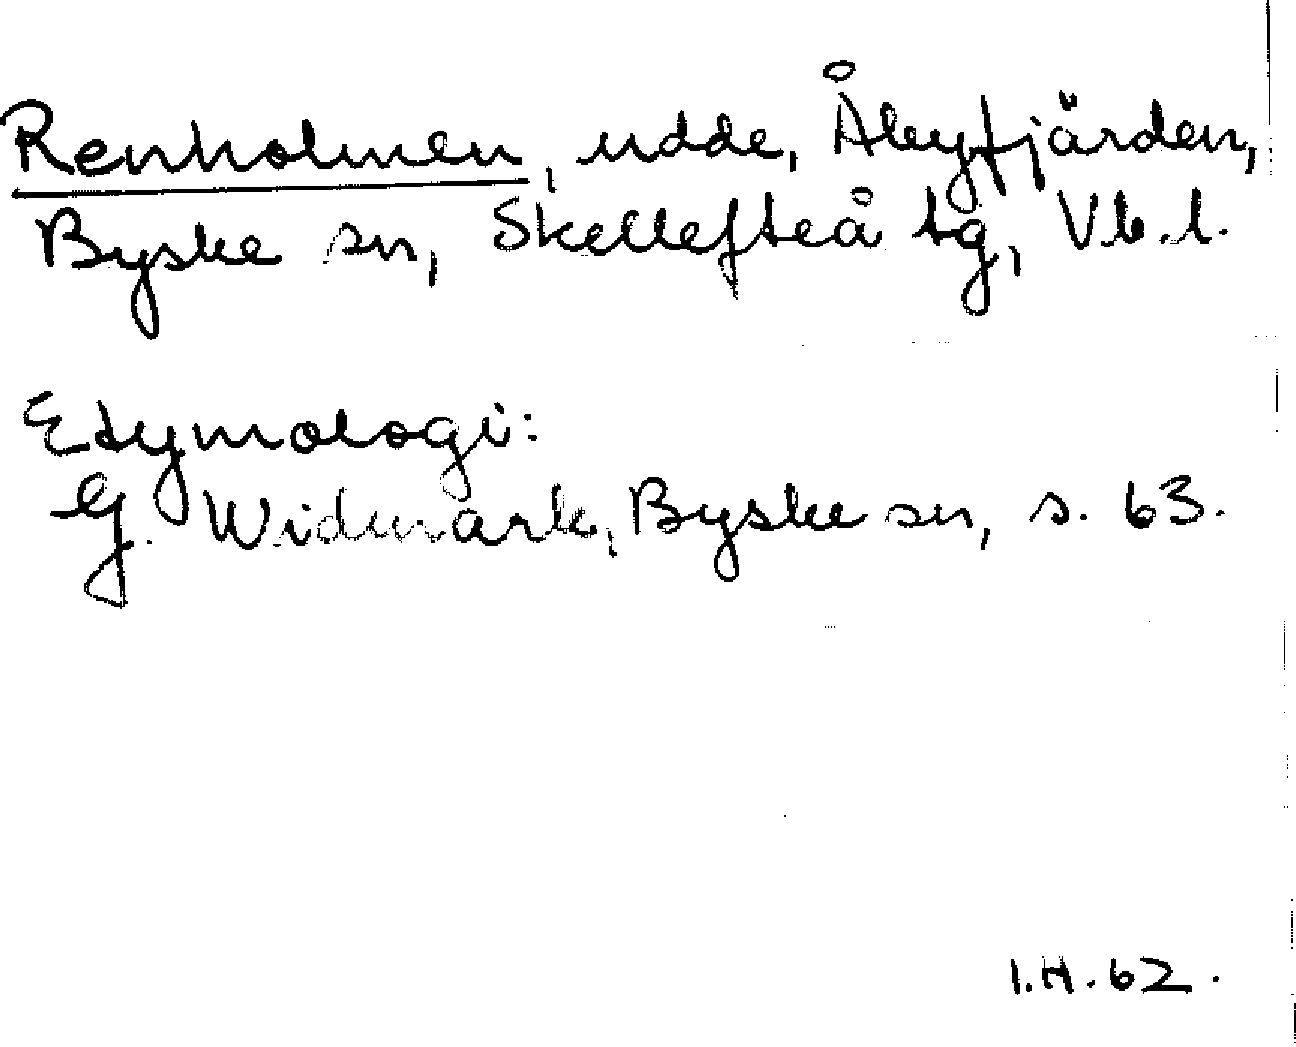 Renholmen, udde, Åbyfjärden,
Byske sn, Skellefteå tg, Vb.l.
Etymologi:
G. Widmark, Byske sn, s. 63.
I.H.62.